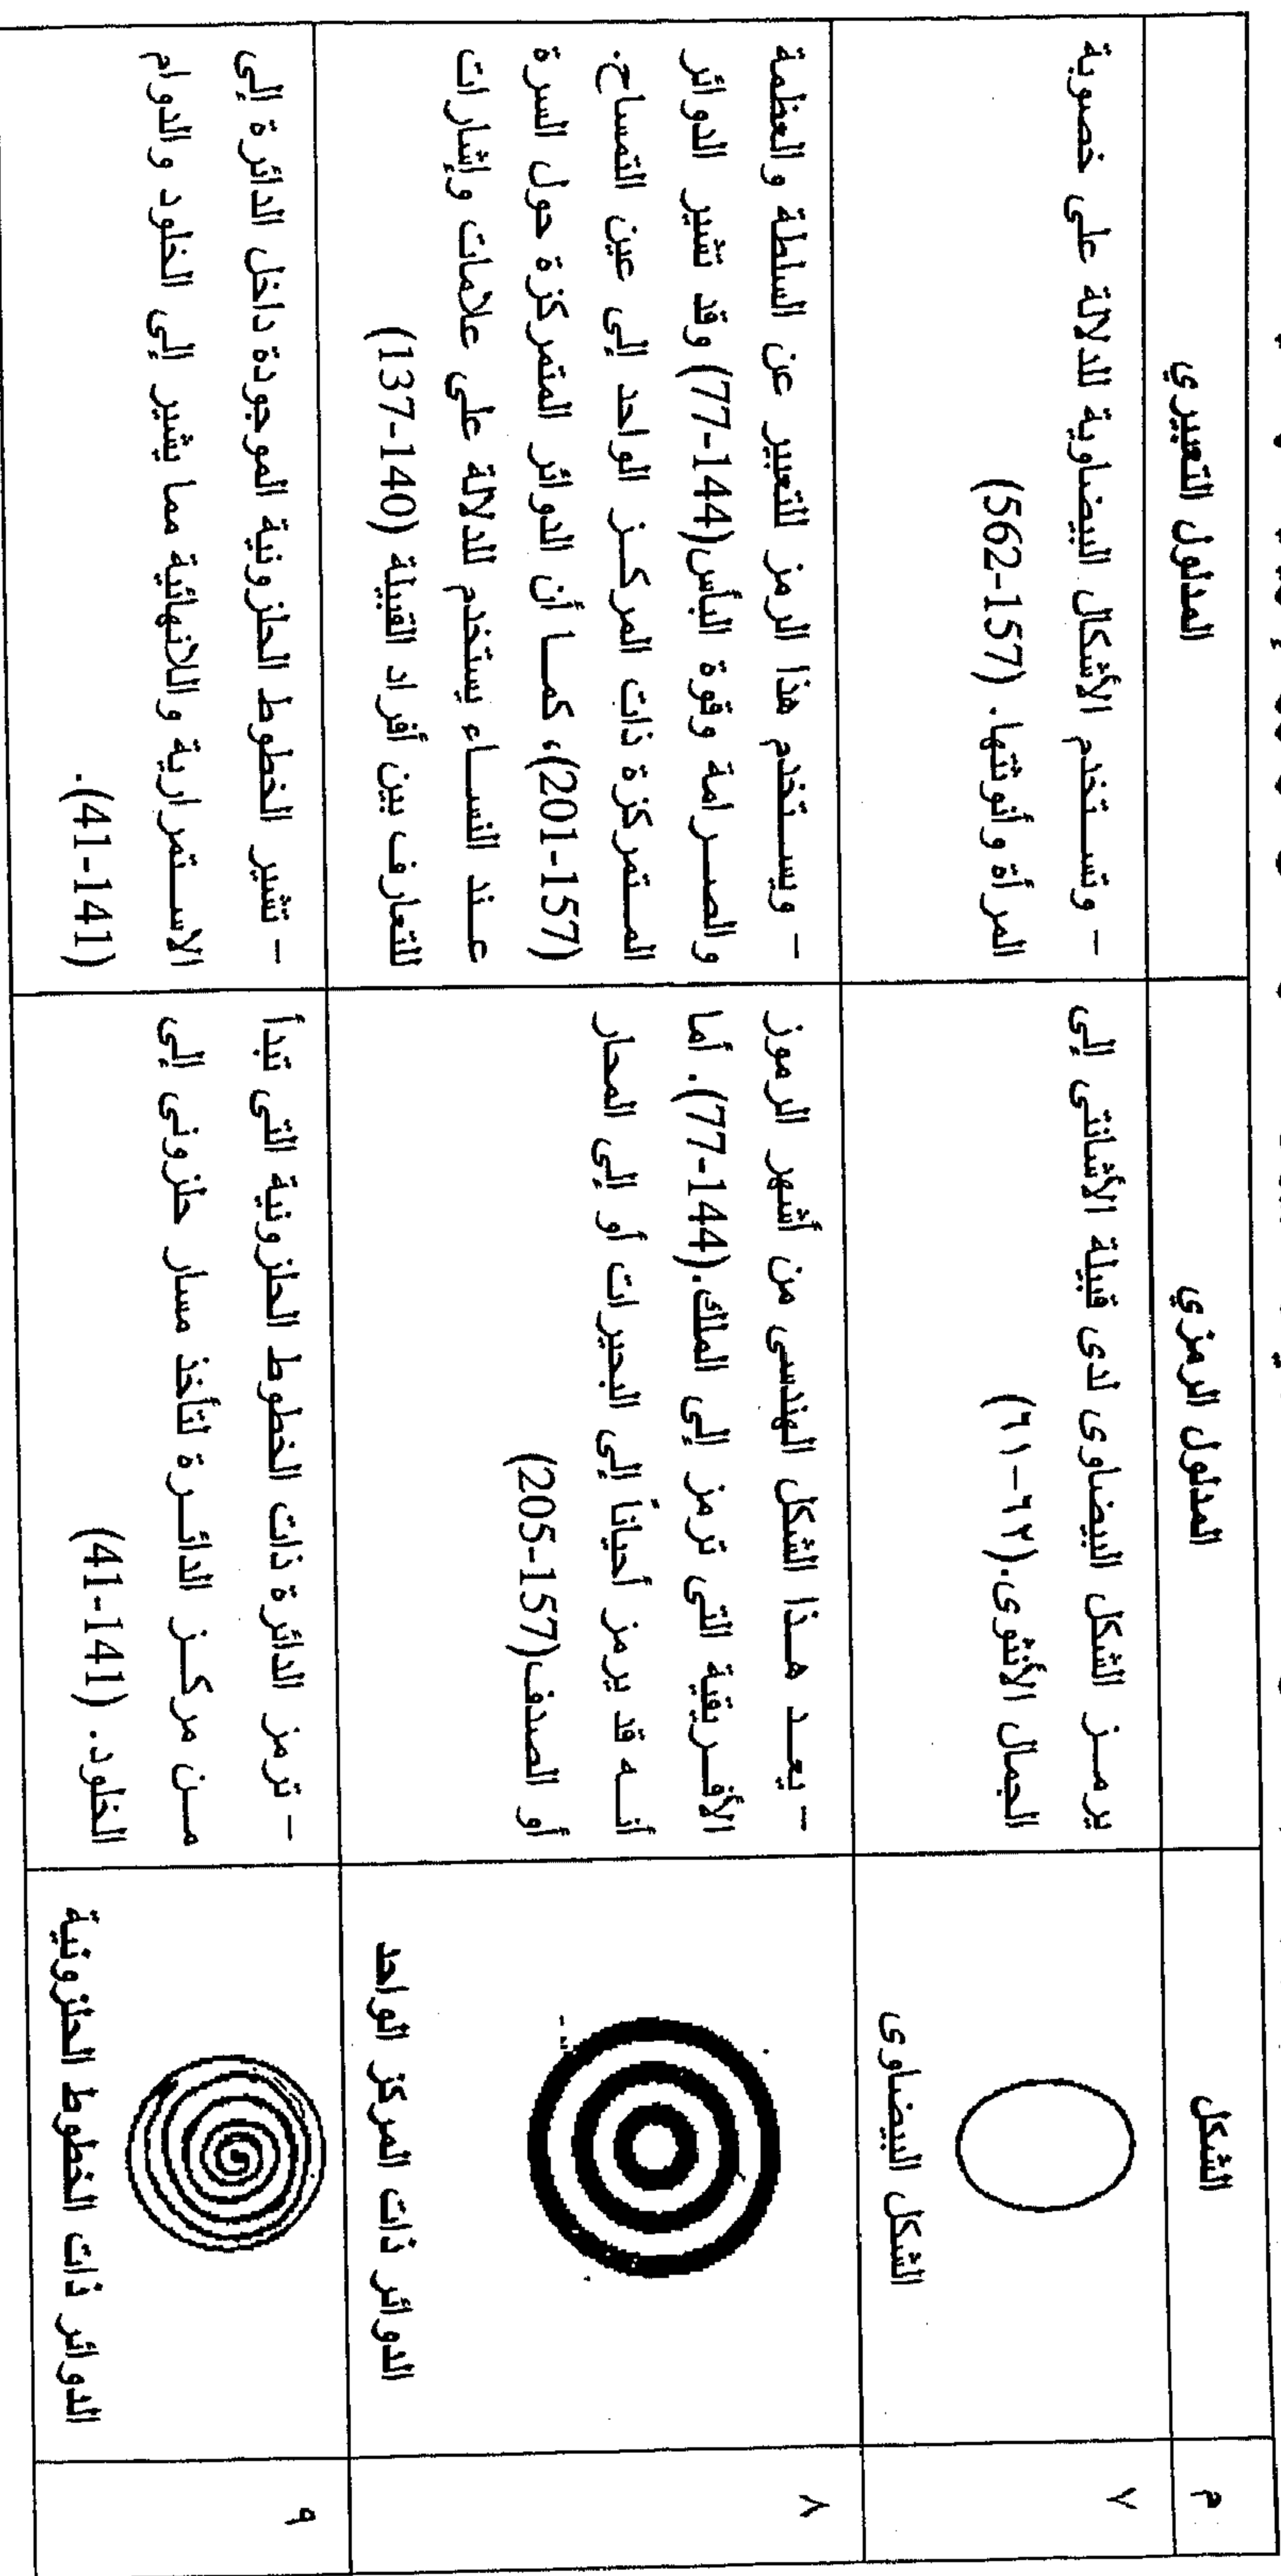 م
الشكل
المدلول الرمزي
المدلول التعبيري
٧
الشكل البيضاوى
يرمز الشكل البيضاوى لدى قبيلة الأشانتى إلى
الجمال الأنثوى.(٦٢-٦١)
- وتستخدم الأشكال البيضاوية للدلالة على خصوبة
المرأة وأنوثتها. (157-562)
٨
الدوائر ذات المركز الواحد
- يعد هذا الشكل الهندسى من أشهر الرموز
الأفريقية التى ترمز إلى الملك.(144-77). أما
أنه قد يرمز أحياناً إلى البحيرات أو إلى المحار
أو الصدف(157-205)
- ويستخدم هذا الرمز للتعبير عن السلطة والعظمة
والصرامة وقوة البأس(144-77) وقد تشير الدوائر
المتمركزة ذات المركز الواحد إلى عين التمساح.
(157-201)، كما أن الدوائر المتمركزة حول السرة
عند النساء يستخدم للدلالة على علامات وإشارات
للتعارف بين أفراد القبيلة (140-137)
٩
الدوائر ذات الخطوط الحلزونية
- ترمز الدائرة ذات الخطوط الحلزونية التى تبدأ
من مركز الدائرة لتأخذ مسار حلزونى إلى
الخلود. (141-41)
- تشير الخطوط الحلزونية الموجودة داخل الدائرة إلى
الاستمرارية واللانهائية مما يشير إلى الخلود والدوام
(141-41).